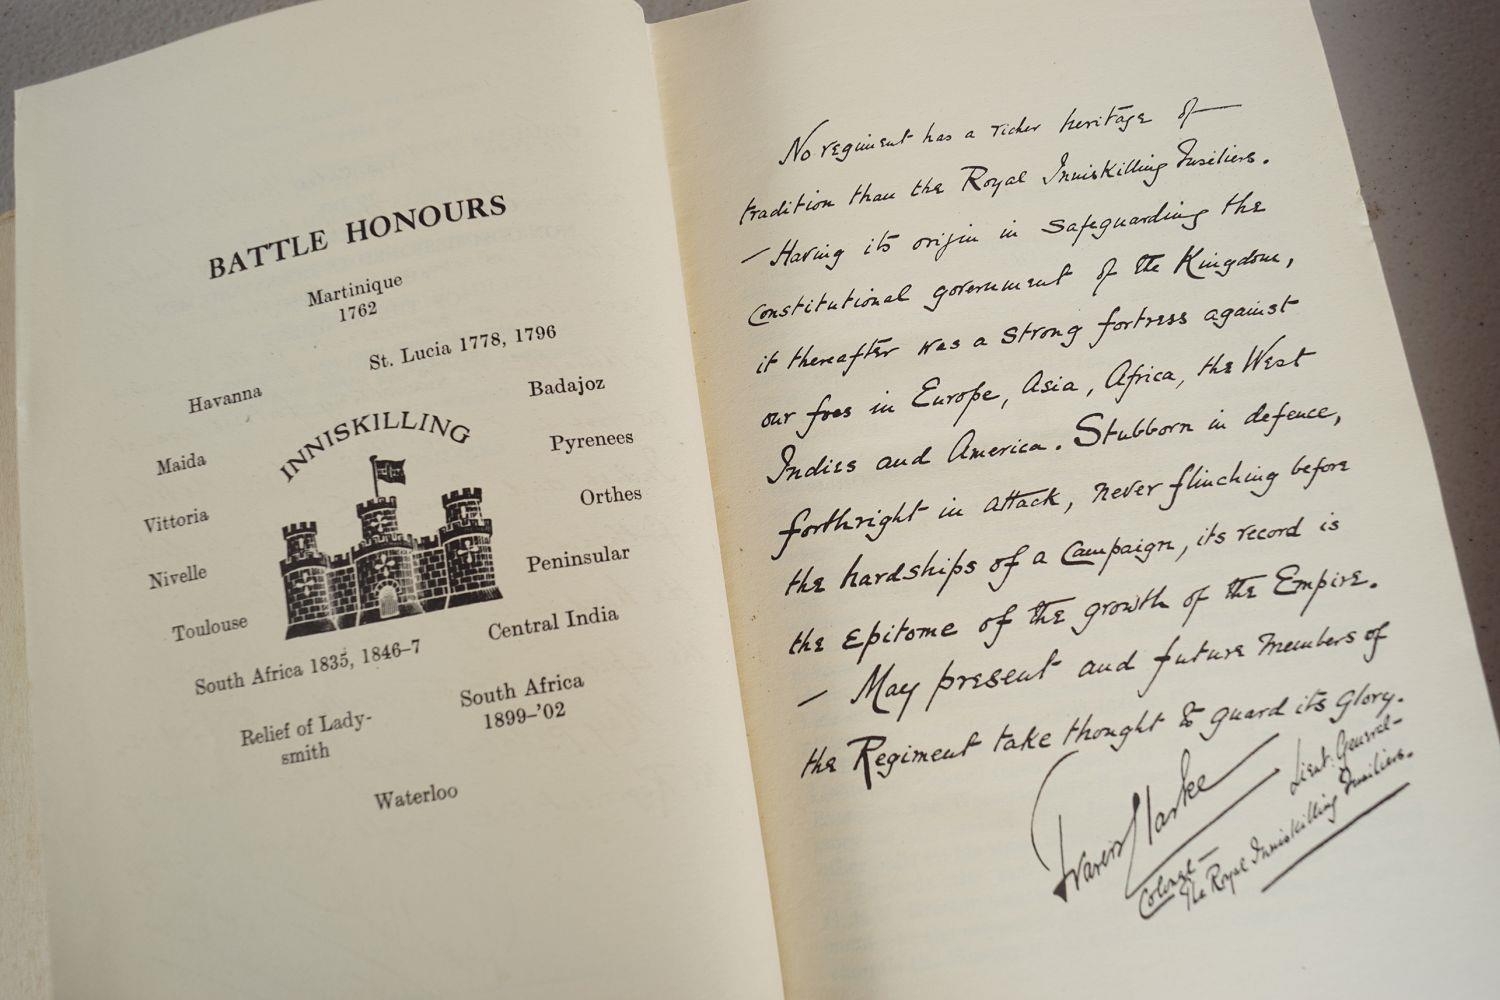 BATTLE HONOURS
Martinique
1762
St. Lucia 1778, 1796
Havanna
Badajoz
INNISKILLING
Maida
Pyrenees
Vittoria
Orthes
Nivelle
Peninsular
Toulouse
Central India
South Africa 1835, 1846-7
South Africa
1899-'02
Relief of Lady-
smith
Waterloo
No regiment has a richer heritage of
tradition than the Royal Inniskilling Fusiliers.
- Having its origin in safeguarding the
constitutional government of the Kingdom,
it thereafter was a strong fortress against
our foes in Europe, Asia, Africa, the West
Indies and America. Stubborn in defence,
forthright in attack, never flinching before
the hardships of a campaign, its record is
the epitome of the growth of the Empire.
- May present and future members of
the Regiment take thought to guard its glory.
Travers Clarke
Lieut: General-
Colonel-
The Royal Inniskilling Fusiliers.